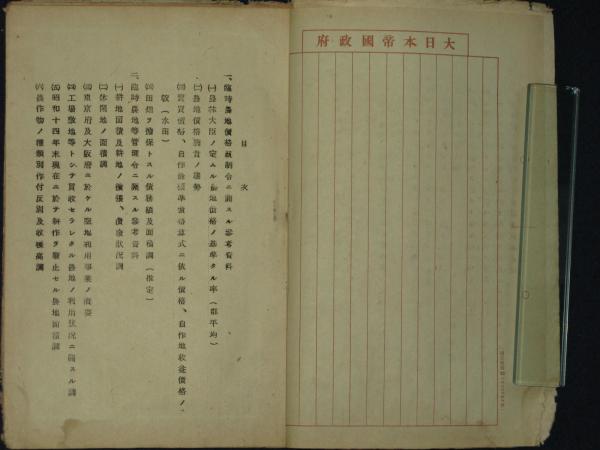 大日本帝國政府
目次
一、臨時農地價格統制令ニ關スル參考資料
(一)農林大臣ノ定ムル農地價格ノ基準タル率(都平均)
(二)農地價格騰貴ノ趨勢
(三)賣買價格、自作農標準價格算式ニ依ル價格、自作地收益價格ノ
(水田)
(四)田畑ヲ擔保トスル債務額及面積調(推定)
二、臨時農地等管理令ニ關スル參考資料
(一)耕地面積及耕地ノ擴張、潰廢狀況調
(二)休閑地ノ面積調
(三)東京府及大阪府ニ於ケル空地利用事業ノ概要
(四)工場敷地等トシテ買收セラレタル農地ノ利用狀況ニ關スル調
(五)昭和十四年末現在ニ於テ耕作ヲ廢止セル農地面積調
(六)農作物ノ種類別作付反別及收穫高調